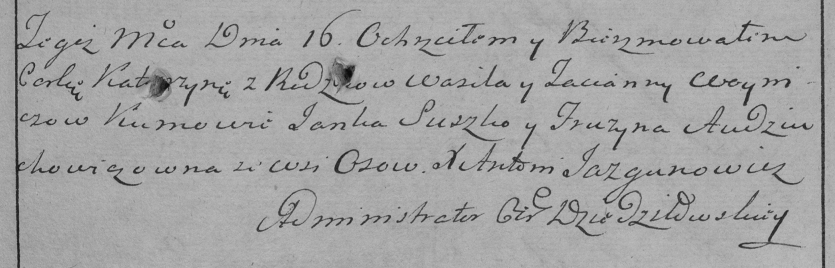 Tegoż Mca Dnia 16. Ochrzciłem y Bierzmowałem
Corkę Katarzynę z Rodzicow Wasila y Tacianny Woyni-
czow Kumowie Janka Suszko y Fruzyna Audziu
chowiczowna ze wsi Osow. X Antoni Jazgunowicz
Administrator Cer Dziedziłowskiey